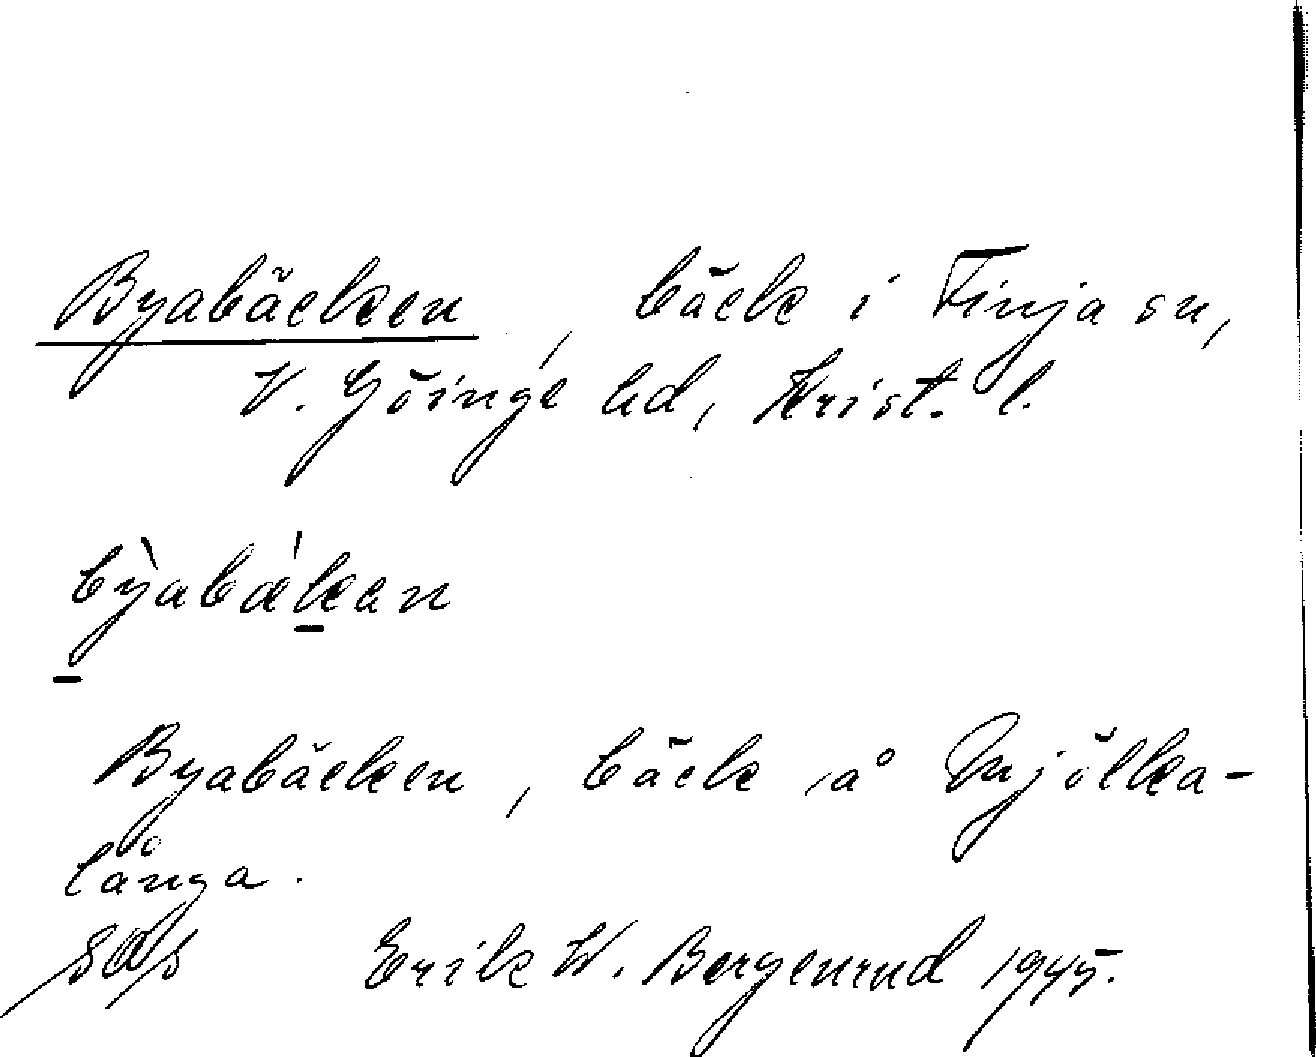 Byabäcken, bäck i Finja sn,
V. Göinge hd, Krist. l.
bỳabǽkan
Byabäcken, bäck å Mjölka-
långa.
Erik W. Bergenrud 1945.